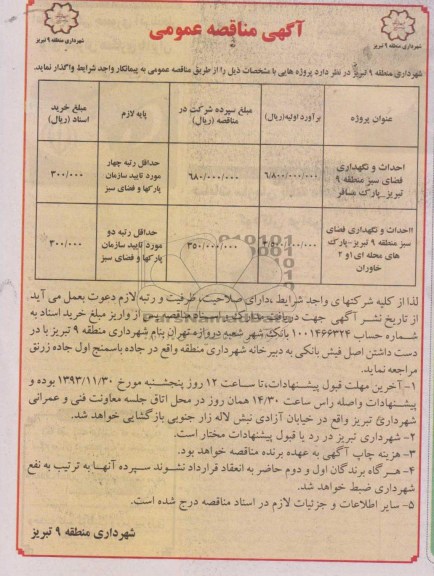 آگهی مناقصه عمومی
شهرداری منطقه ۹ تبریز
شهرداری منطقه ۹ تبریز
شهرداری منطقه ۹ تبریز در نظر دارد پروژه هایی با مشخصات ذیل را از طریق مناقصه عمومی به پیمانکار واجد شرایط واگذار نماید.
عنوان پروژه
برآورد اولیه(ریال)
مبلغ سپرده شرکت در مناقصه (ریال)
پایه لازم
مبلغ خرید اسناد (ریال)
احداث و نگهداری فضای سبز منطقه ۹ تبریز_پارک مسافر
۶/۸۰۰/۰۰۰/۰۰۰
۶۸۰/۰۰۰/۰۰۰
حداقل رتبه چهار مورد تایید سازمان پارکها و فضای سبز
۳۰۰/۰۰۰
احداث و نگهداری فضای سبز منطقه ۹ تبریز-پارک های محله ای ۱و ۲ خاوران
۳/۵۰۰/۰۰۰/۰۰۰
۳۵۰/۰۰۰/۰۰۰
حداقل رتبه دو مورد تایید سازمان پارکها و فضای سبز
۳۰۰/۰۰۰
لذا از کلیه شرکتهای واجد شرایط ،دارای صلاحیت، ظرفیت و رتبه لازم دعوت بعمل می آید.
از تاریخ نشر آگهی جهت دریافت مدارک و اسناد مناقصه پس از واریز مبلغ خرید اسناد به
شماره حساب ۱۰۰۱۴۶۶۳۲۴ بانک شهر شعبه دروازه تهران بنام شهرداری منطقه ۹ تبریز با در
دست داشتن اصل فیش بانکی به دبیرخانه شهرداری منطقه واقع در جاده باسمنج اول جاده زرنق
مراجعه نماید.
۱-آخرین مهلت قبول پیشنهادات،تا ساعت ۱۲ روز پنجشنبه مورخ ۱۳۹۳/۱۱/۳۰ بوده و
پیشنهادات واصله راس ساعت ۱۴/۳۰ همان روز در محل اتاق جلسه معاونت فنی و عمرانی
شهرداری تبریز واقع در خیابان آزادی نبش لاله زار جنوبی بازگشایی خواهد شد.
۲- شهرداری تبریز در رد یا قبول پیشنهادات مختار است.
۳- هزینه چاپ آگهی به عهده برنده مناقصه خواهد بود.
۴- هر گاه برندگان اول و دوم حاضر به انعقاد قرارداد نشوند سپرده آنها به ترتیب به نفع
شهرداری ضبط خواهد شد.
۵- سایر اطلاعات و جزئیات لازم در اسناد مناقصه درج شده است.
شهرداری منطقه ۹ تبریز